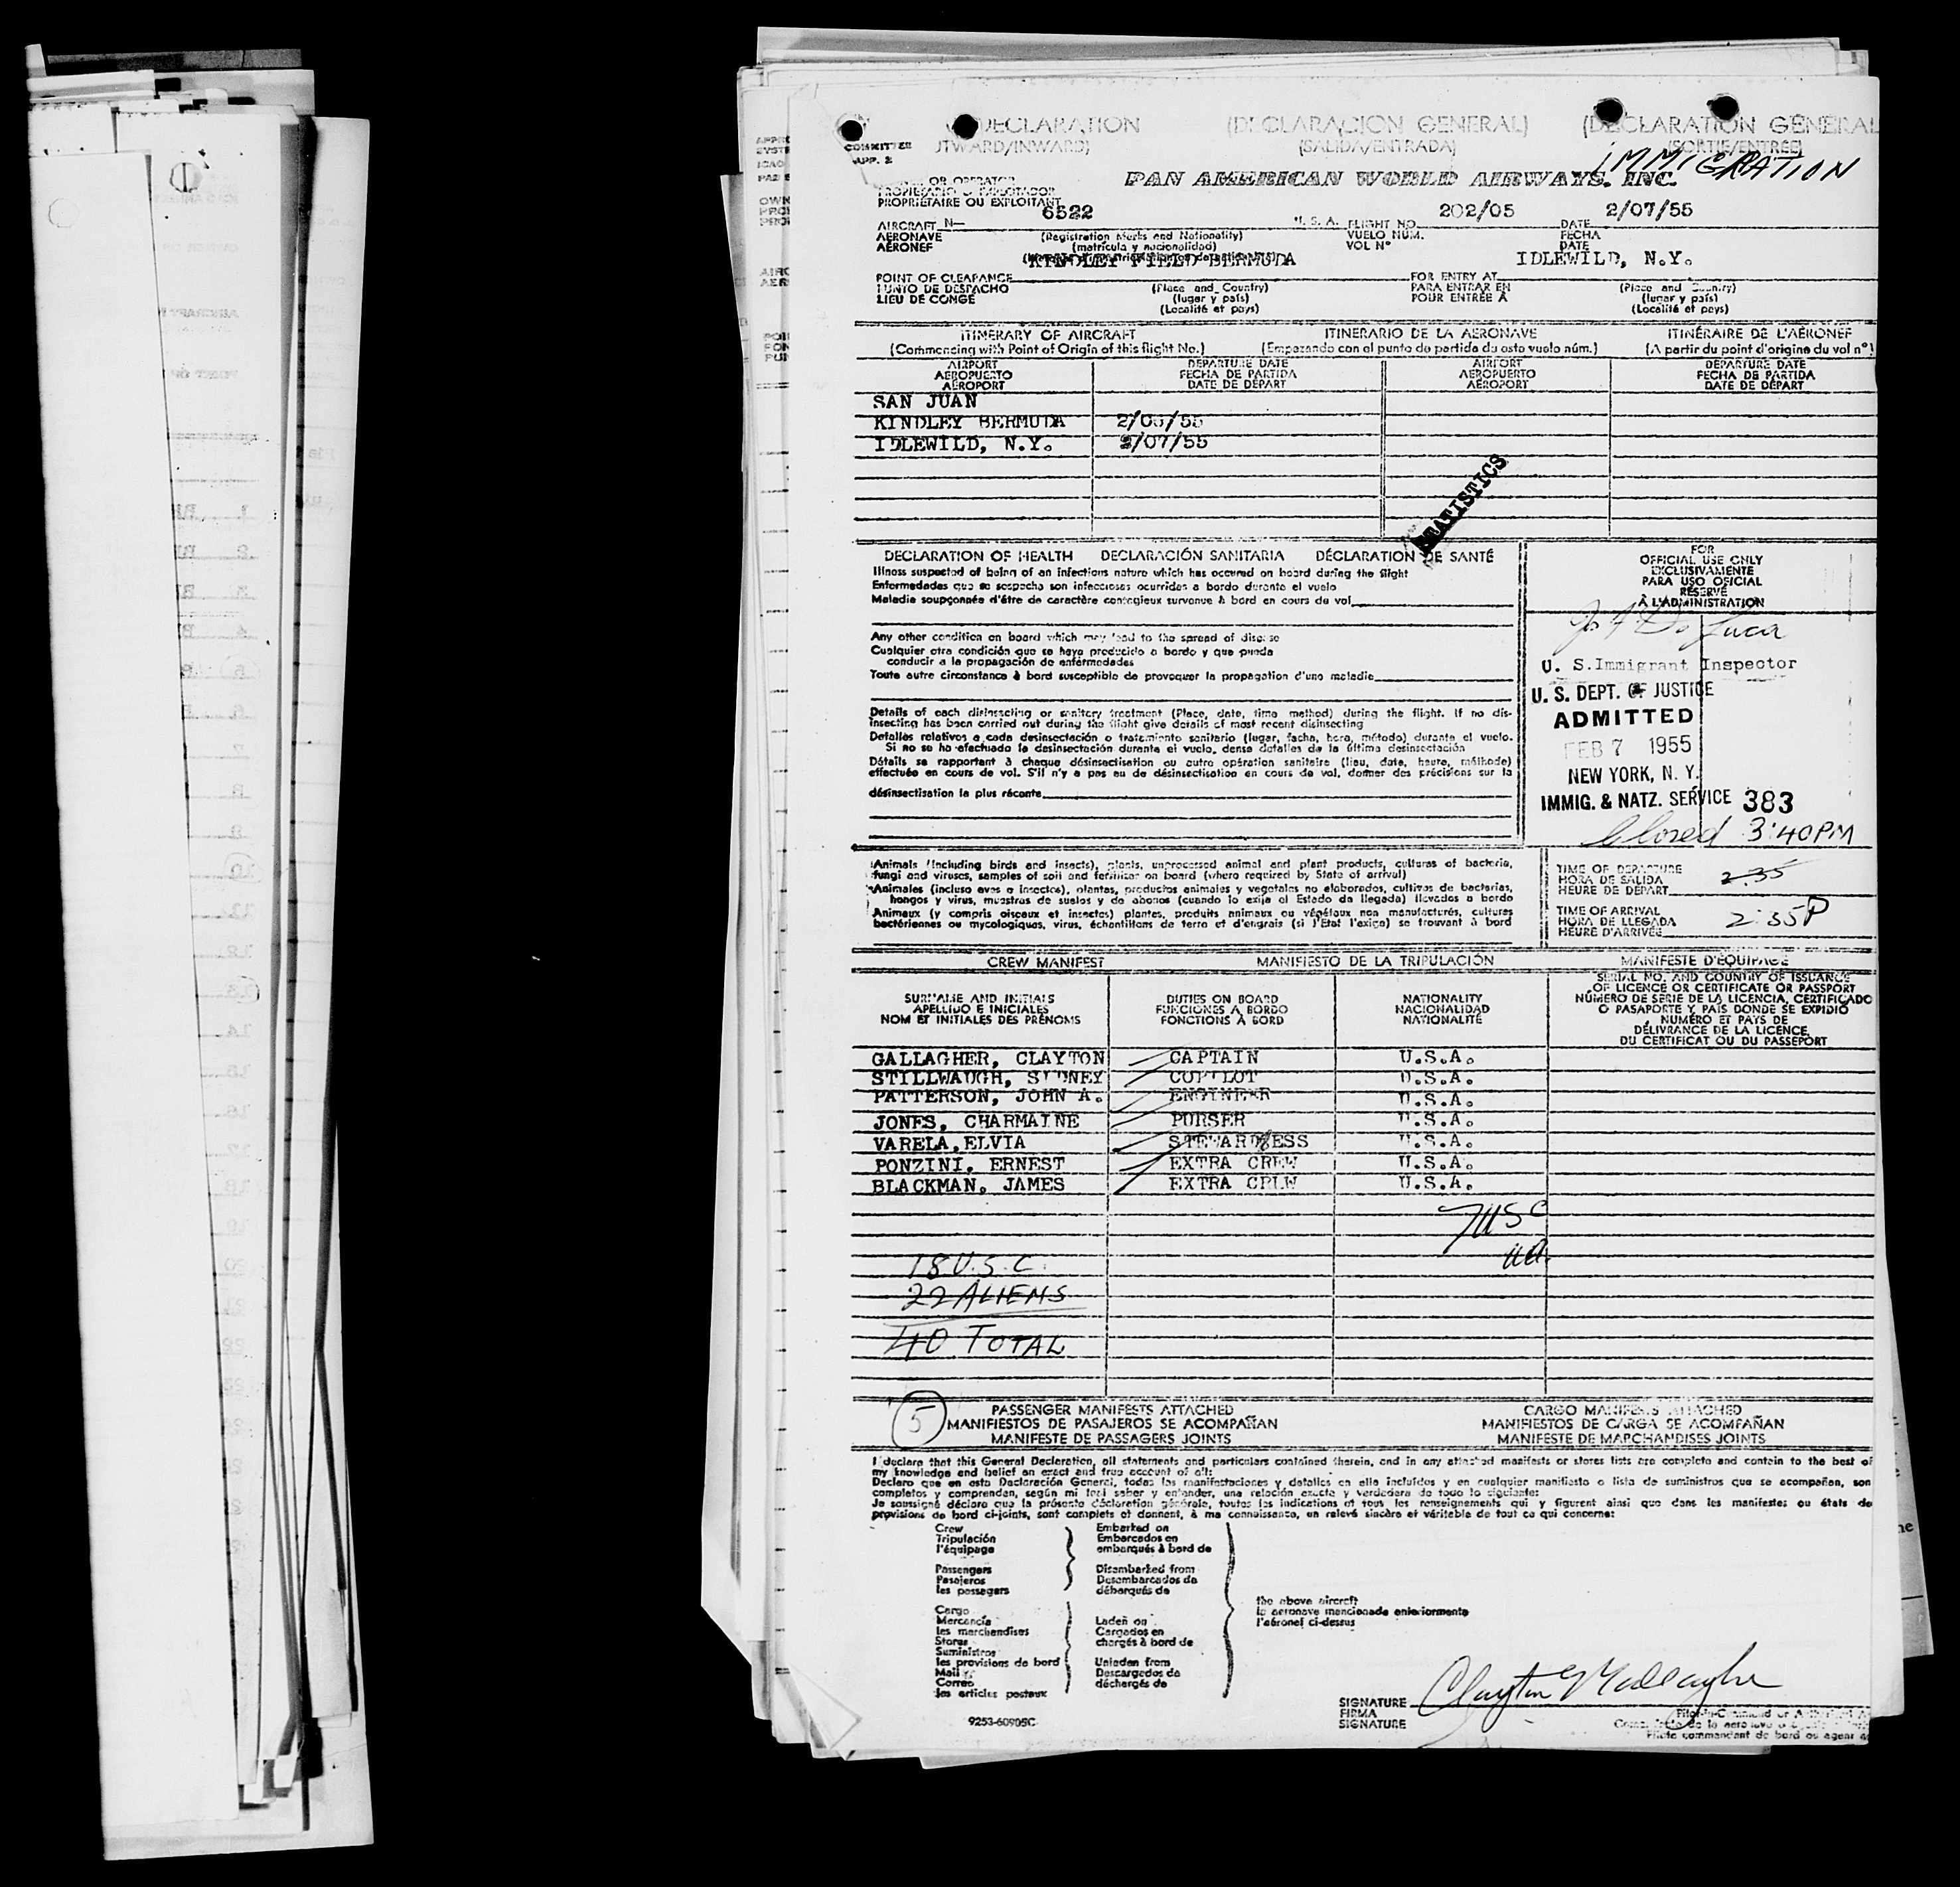 DECLARATION (DECLARACION GENERAL) (DECLARATION GÉNÉRALE
(SALIDA/ENTRADA) (SORTIE/ENTRÉE)
COMMITTEE
APP. 2
IMMIGRATION
OR OPERATOR
PROPIETARIO O EXPLOTADOR
PROPRIÉTAIRE OU EXPLOITANT
PAN AMERICAN WORLD AIRWAYS, INC.
6522 202/05 2/07/55
AIRCRAFT N— U. S. A. FLIGHT NO. DATE
AERONAVE (Registration Marks and Nationality) VUELO NÚM. FECHA
AÉRONEF (matrícula y nacionalidad) VOL Nº DATE
KINDLEY FIELD BERMUDA IDLEWILD, N.Y.
POINT OF CLEARANCE FOR ENTRY AT
PUNTO DE DESPACHO (Place and Country) PARA ENTRAR EN (Place and Country)
LIEU DE CONGÉ (lugar y país) POUR ENTRÉE À (lugar y país)
(Localité et pays) (Localité et pays)
ITINERARY OF AIRCRAFT ITINERARIO DE LA AERONAVE ITINÉRAIRE DE L'AÉRONEF
(Commencing with Point of Origin of this flight No.) (Empezando con el punto de partida de este vuelo núm.) (A partir du point d'origine du vol nº)
AIRPORT DEPARTURE DATE AIRPORT DEPARTURE DATE
AEROPUERTO FECHA DE PARTIDA AEROPUERTO FECHA DE PARTIDA
AÉROPORT DATE DE DÉPART AÉROPORT DATE DE DÉPART
SAN JUAN
KINDLEY BERMUDA 2/05/55
IDLEWILD, N.Y. 2/07/55
STATISTICS
DECLARATION OF HEALTH DECLARACIÓN SANITARIA DÉCLARATION DE SANTÉ
Illness suspected of being of an infectious nature which has occured on board during the flight
Enfermedades que se sospecha son infecciosas ocurridas a bordo durante el vuelo
Maladie soupçonnée d'être de caractère contagieux survenue à bord en cours de vol
Any other condition on board which may lead to the spread of disease
Cualquier otra condición que se haya producido a bordo y que pueda
conducir a la propagación de enfermedades
Toute autre circonstance à bord susceptible de provoquer la propagation d'une maladie
Details of each disinsecting or sanitary treatment (Place, date, time method) during the flight. If no dis-
insecting has been carried out during the flight give details of most recent disinsecting
Detalles relativos a cada desinsectación o tratamiento sanitario (lugar, fecha, hora, método) durante el vuelo.
Si no se ha efectuado la desinsectación durante el vuelo, dense detalles de la última desinsectación
Détails se rapportant à chaque désinsectisation ou autre opération sanitaire (lieu, date, heure, méthode)
effectuée en cours de vol. S'il n'y a pas eu de désinsectisation en cours de vol, donner des précisions sur la
désinsectisation la plus récente
FOR
OFFICIAL USE ONLY
EXCLUSIVAMENTE
PARA USO OFICIAL
RÉSERVÉ
À L'ADMINISTRATION
U. S. Immigrant Inspector
U. S. DEPT. OF JUSTICE
ADMITTED
FEB 7 1955
NEW YORK, N. Y.
IMMIG. & NATZ. SERVICE 383
Closed 3:40PM
Animals (including birds and insects), plants, unprocessed animal and plant products, cultures of bacteria,
fungi and viruses, samples of soil and fertilizer on board (where required by State of arrival)
Animales (incluso aves e insectos), plantas, productos animales y vegetales no elaborados, cultivos de bacterias,
hongos y virus, muestras de suelos y de abonos (cuando lo exija el Estado de llegada) llevados a bordo
Animaux (y compris oiseaux et insectes) plantes, produits animaux ou végétaux non manufacturés, cultures
bactériennes ou mycologiques, virus, échantillons de terre et d'engrais (si l'État l'exige) se trouvant à bord
TIME OF DEPARTURE
HORA DE SALIDA 2:35
HEURE DE DÉPART
TIME OF ARRIVAL
HORA DE LLEGADA 2:35P
HEURE D'ARRIVÉE
CREW MANIFEST MANIFIESTO DE LA TRIPULACIÓN MANIFESTE D'ÉQUIPAGE
SURNAME AND INITIALS DUTIES ON BOARD NATIONALITY
APELLIDO E INICIALES FUNCIONES A BORDO NACIONALIDAD
NOM ET INITIALES DES PRÉNOMS FONCTIONS À BORD NATIONALITÉ
SERIAL NO. AND COUNTRY OF ISSUANCE
OF LICENCE OR CERTIFICATE OR PASSPORT
NÚMERO DE SERIE DE LA LICENCIA, CERTIFICADO
O PASAPORTE Y PAIS DONDE SE EXPIDIÓ
NUMÉRO ET PAYS DE
DÉLIVRANCE DE LA LICENCE,
DU CERTIFICAT OU DU PASSEPORT
GALLAGHER, CLAYTON CAPTAIN U.S.A.
STILLWAUGH, SIDNEY COPILOT U.S.A.
PATTERSON, JOHN A. ENGINEER U.S.A.
JONES, CHARMAINE PURSER U.S.A.
VARELA, ELVIA STEWARDESS U.S.A.
PONZINI, ERNEST EXTRA CREW U.S.A.
BLACKMAN, JAMES EXTRA CREW U.S.A.
7USC
18 U.S.C.
22 ALIENS
40 TOTAL
5
PASSENGER MANIFESTS ATTACHED CARGO MANIFESTS ATTACHED
MANIFIESTOS DE PASAJEROS SE ACOMPAÑAN MANIFIESTOS DE CARGA SE ACOMPAÑAN
MANIFESTE DE PASSAGERS JOINTS MANIFESTE DE MARCHANDISES JOINTS
I declare that this General Declaration, all statements and particulars contained therein, and in any attached manifests or stores lists are complete and contain to the best of
my knowledge and belief an exact and true account of all:
Declaro que en esta Declaración General, todas las manifestaciones y detalles en ella incluidos y en cualquier manifiesto o lista de suministros que se acompañan, son
completos y comprenden, según mi leal saber y entender, una relación exacta y verdadera de todo lo siguiente:
Je soussigné déclare que la présente déclaration générale, toutes les indications et tous les renseignements qui y figurent ainsi que dans les manifestes ou états de
provisions de bord ci-joints, sont complets et donnent, à ma connaissance, un relevé sincère et véritable de tout ce qui concerne:
Crew Embarked on
Tripulación Embarcados en
l'équipage embarqués à bord de
Passengers Disembarked from
Pasajeros Desembarcados de
les passagers débarqués de
the above aircraft
la aeronave mencionada anteriormente
l'aéronef ci-dessus
Cargo
Mercancía Laden on
les marchandises Cargados en
Stores chargés à bord de
Suministros
les provisions de bord Unladen from
Mail Descargados de
Correo déchargés de
les articles postaux
SIGNATURE Clayton Gallagher
FIRMA
SIGNATURE
Pilote commandant de bord ou agent
9253-60905C